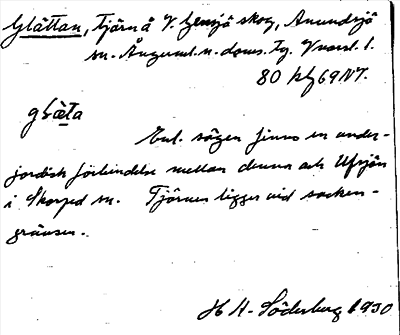 Glåttan, tjärn å V. Gensjö skog, Anundsjö
sn. Ångerml. n. doms. tg. Vnorrl. l.
80
glæta
Enl. sägen finns en under-
jordisk förbindelse mellan denna och Ufsjön
i Skorped sn. Tjärnen ligger vid socken-
gränsen.
H H-Söderberg 1930